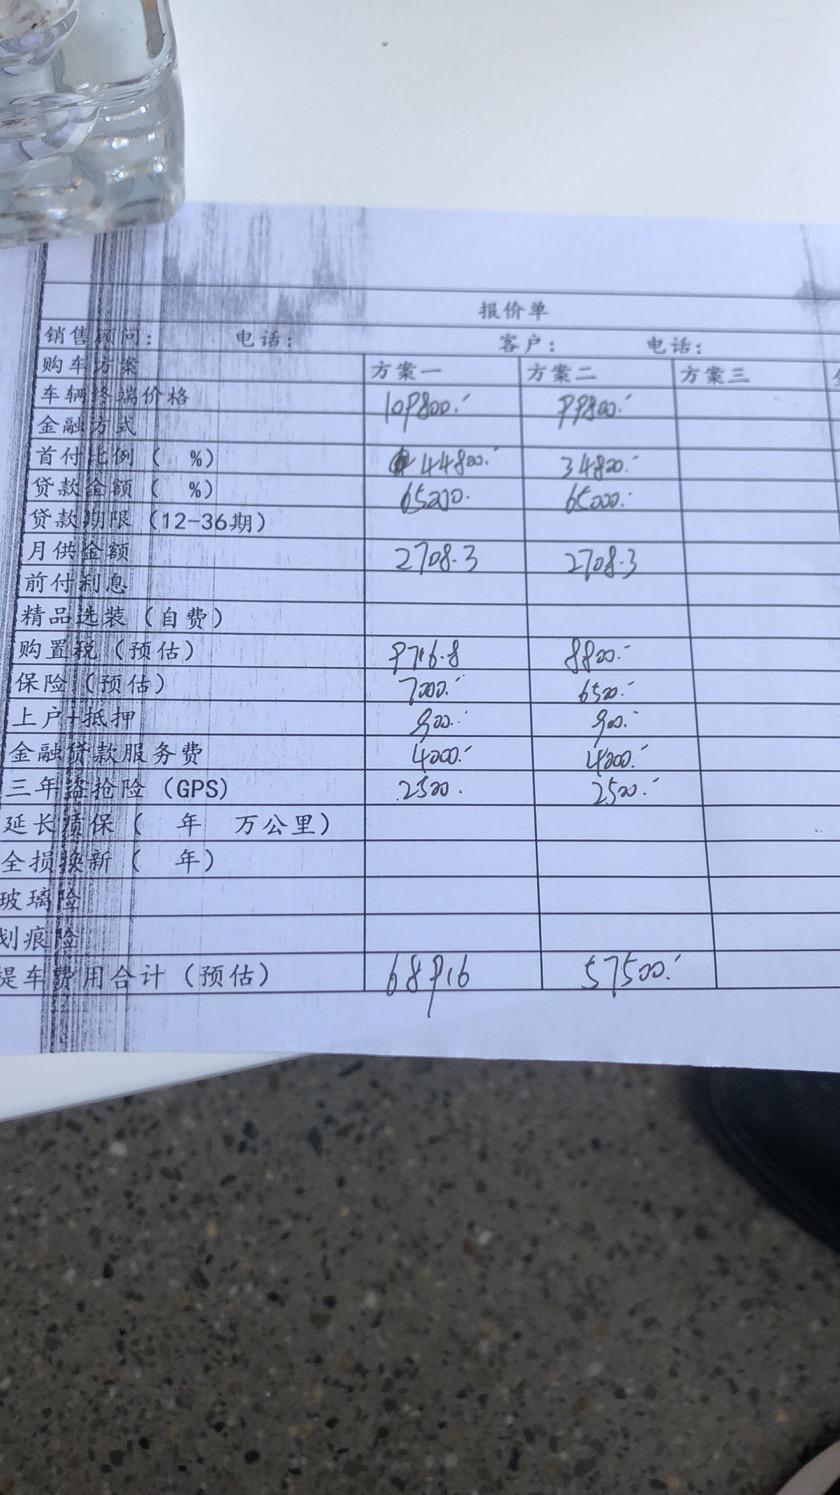 报价单
销售顾问： 电话： 客户： 电话：
购车方案 方案一 方案二 方案三
车辆终端价格 109800.- 99800.-
金融方式
首付比例（ %） 44800.- 34800.-
贷款金额（ %） 65000. 65000.-
贷款期限（12-36期）
月供金额 2708.3 2708.3
前付利息
精品选装（自费）
购置税（预估） 9716.8 8800.-
保险（预估） 7000.- 6500.-
上户+抵押 900.- 900.-
金融贷款服务费 4000.- 4000.-
三年盗抢险（GPS） 2500. 2500.-
延长质保（ 年 万公里）
全损换新（ 年）
玻璃险
划痕险
提车费用合计（预估） 68916 57500.-